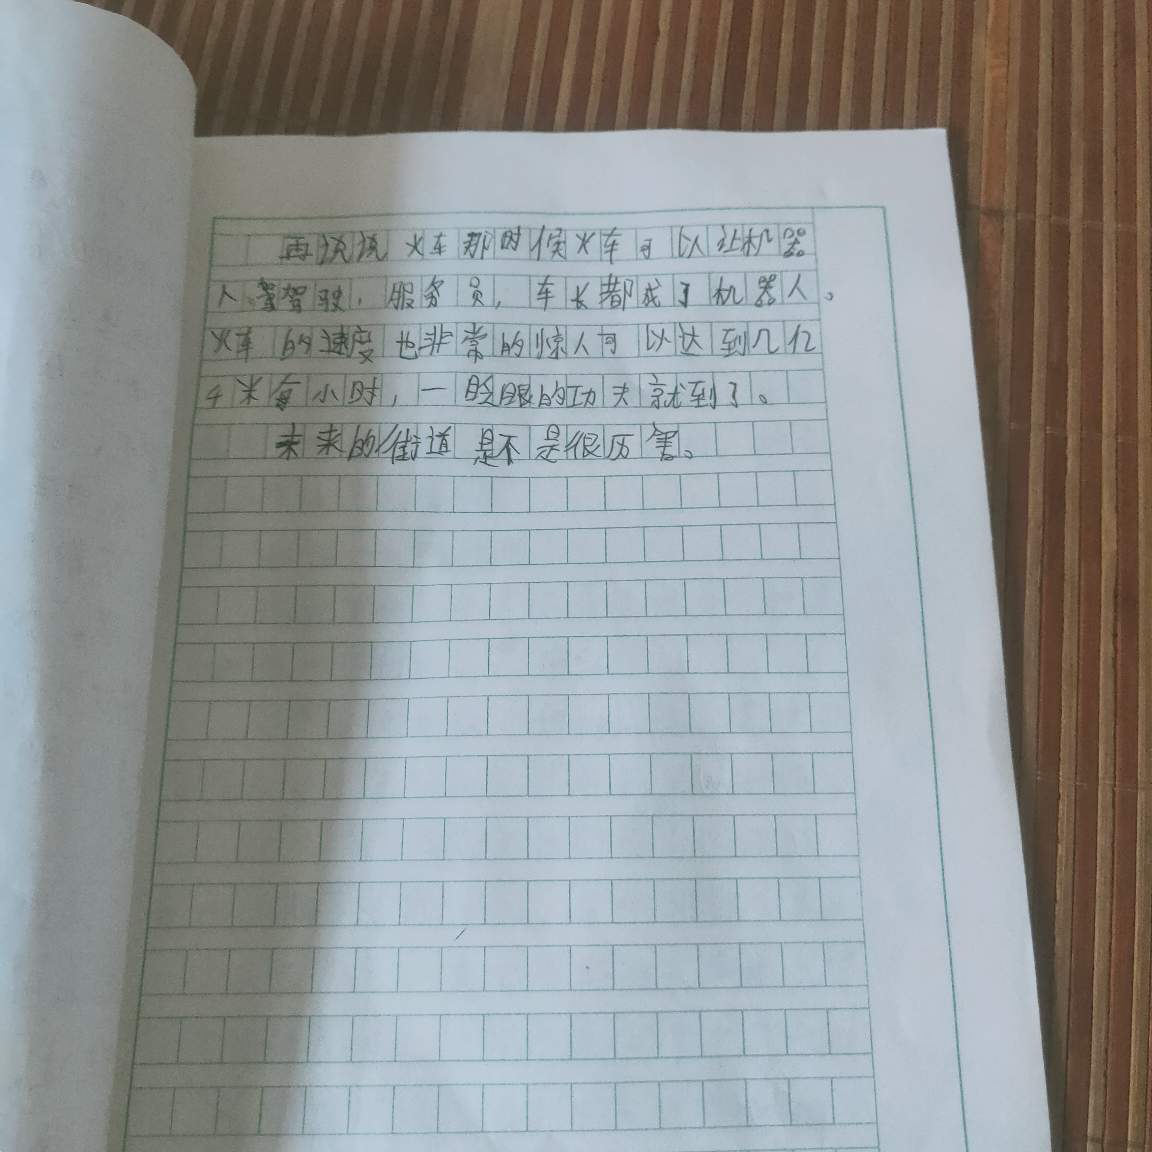 再说说火车那时候火车可以让机器
人驾驶，服务员，车长都成了机器人。
火车的速度也非常的惊人可以达到几亿
千米每小时，一眨眼的功夫就到了。
未来的街道是不是很厉害。